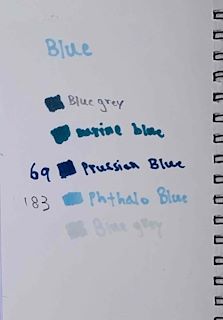 Blue
Blue grey
marine blue
69 Prussian Blue
183 Phthalo Blue
Blue grey